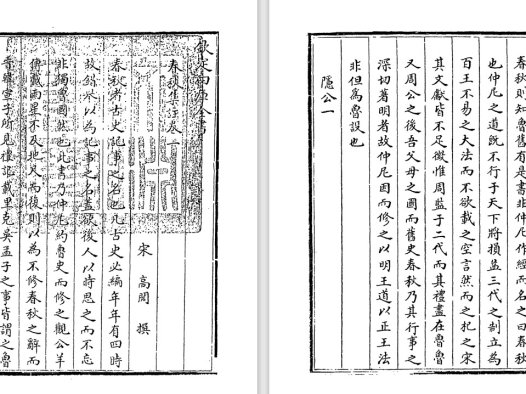 欽定四庫全書
春秋集註卷一
宋 高閌 撰
春秋者古史記事之名也凡古史必編年年有四時
故錯舉以為記事之名蓋欲後人以時思之而不忘
非獨魯國然也此書乃仲尼約魯史而修之觀公羊
傳載雨星不及地尺而復則以為不修春秋之辭而
晉韓宣子所見禮記載里克吳孟子之事皆謂之魯
春秋則知魯舊有是書非仲尼作經而名之曰春秋
也仲尼之道既不行于天下將損益三代之制立為
百王不易之大法而不欲載之空言然而之杞之宋
其文獻皆不足徵惟周監于二代而其禮盡在魯魯
又周公之後吾父母之國而舊史春秋乃其行事之
深切著明者故仲尼因而修之以明王道以正王法
非但為魯設也
隱公一